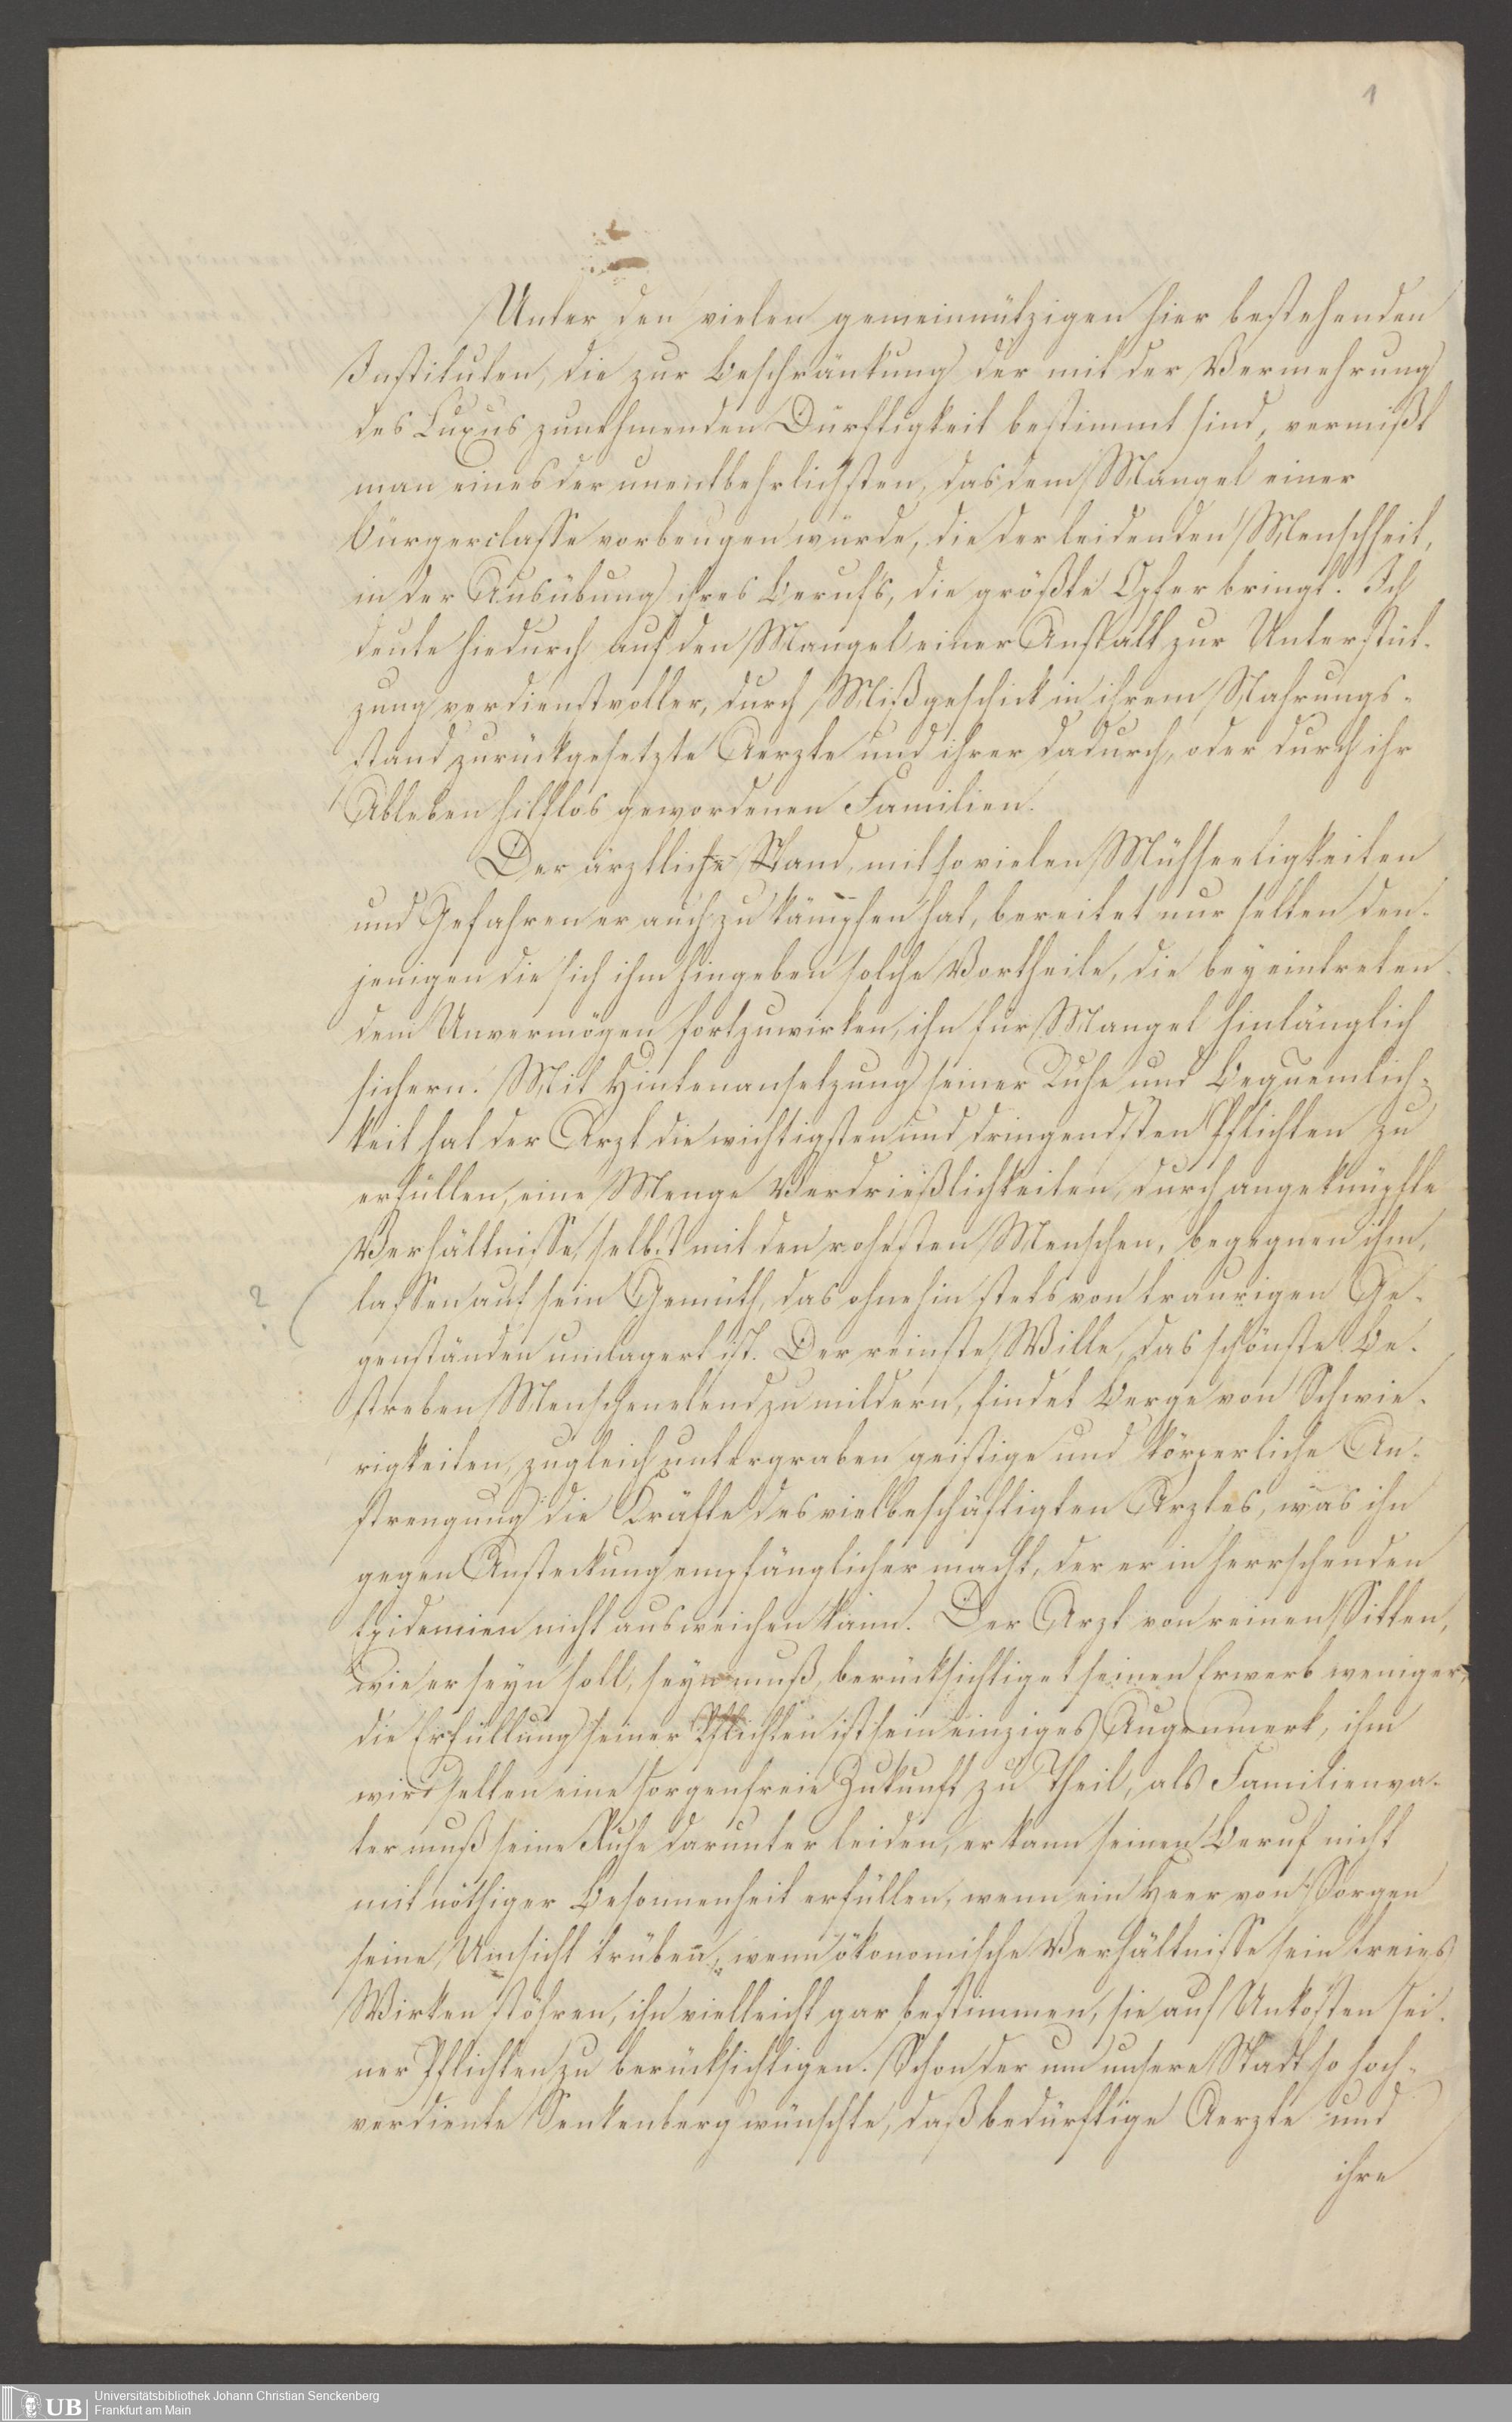 1
Unter den vielen gemeinnützigen hier bestehenden
Instituten, die zur Beschränkung der mit der Vermehrung
des Luxus zunehmenden Dürftigkeit bestimmt sind, vermißt
man eines der unentbehrlichsten, das dem Mangel einer
Bürgerclasse vorbeugen würde, die der leidenden Menschheit,
in der Ausübung ihres Berufs, die größte Opfer bringt. Ich
deute hiedurch auf den Mangel einer Anstalt zur Unterstüt-
zung verdienstvoller, durch Mißgeschick in ihrem Nahrungs-
stand zurückgesetzte Aerzte und ihrer dadurch, oder durch ihr
Ableben hilflos gewordenen Familien.
Der ärztliche Stand, mit so vielen Mühseeligkeiten
und Gefahren er auch zu kämpfen hat, bereitet nur selten den-
jenigen die sich ihm hingeben solche Vortheile, die bey eintreten-
dem Unvermögen fortzuwirken, ihn für Mangel hinlänglich
sichern. Mit Hintenansetzung seiner Ruhe und Bequemlich-
keit hat der Arzt die wichtigsten und dringendsten Pflichten zu
erfüllen, eine Menge Verdrießlichkeiten, durch angeknüpfte
Verhältnisse, selbst mit den rohesten Menschen, begegnen ihm,
? ( lassen auf sein Gemüth, das ohnehin stets von traurigen Ge-
genständen umlagert ist. Der reinste Wille, das schönste Be-
streben Menschenelend zu mildern, findet Berge von Schwie-
rigkeiten, zugleich untergraben geistige und körperliche An-
strengung die Kräfte des vielbeschäftigten Arztes, was ihn
gegen Ansteckung empfänglicher macht, der er in herrschenden
Epidemien nicht ausweichen kann. Der Arzt von reinen Sitten,
wie er seyn soll, seyn muß, berücksichtiget seinen Erwerb weniger,
die Erfüllung seiner Pflichten ist sein einziges Augenmerk, ihm
wird selten eine sorgenfreie Zukunft zu Theil, als Familienva-
ter muß seine Ruhe darunter leiden, er kann seinen Beruf nicht
mit nöthiger Besonnenheit erfüllen, wenn ein Heer von Sorgen
seine Umsicht trüben, wenn ökonomische Verhältnisse sein freies
Wirken stöhren, ihn vielleicht gar bestimmen, sie auf Unkosten sei-
ner Pflichten zu berücksichtigen. Schon der um unsere Stadt so hoch-
verdiente Senkenberg wünschte, daß bedürftige Aerzte und
ihre
UB
Universitätsbibliothek Johann Christian Senckenberg
Frankfurt am Main